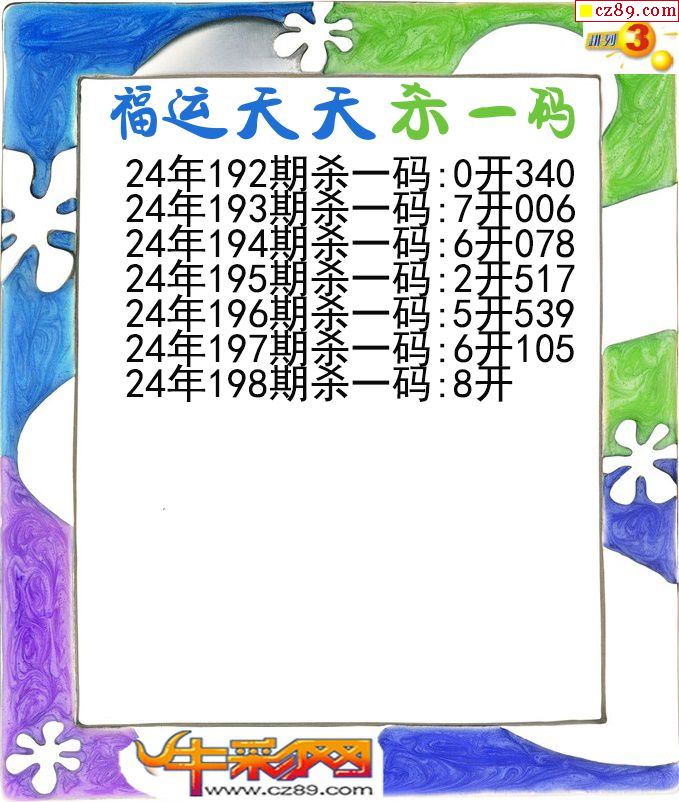 cz89.com
排列3
福运天天杀一码
24年192期杀一码:0开340
24年193期杀一码:7开006
24年194期杀一码:6开078
24年195期杀一码:2开517
24年196期杀一码:5开539
24年197期杀一码:6开105
24年198期杀一码:8开
牛彩网
www.cz89.com